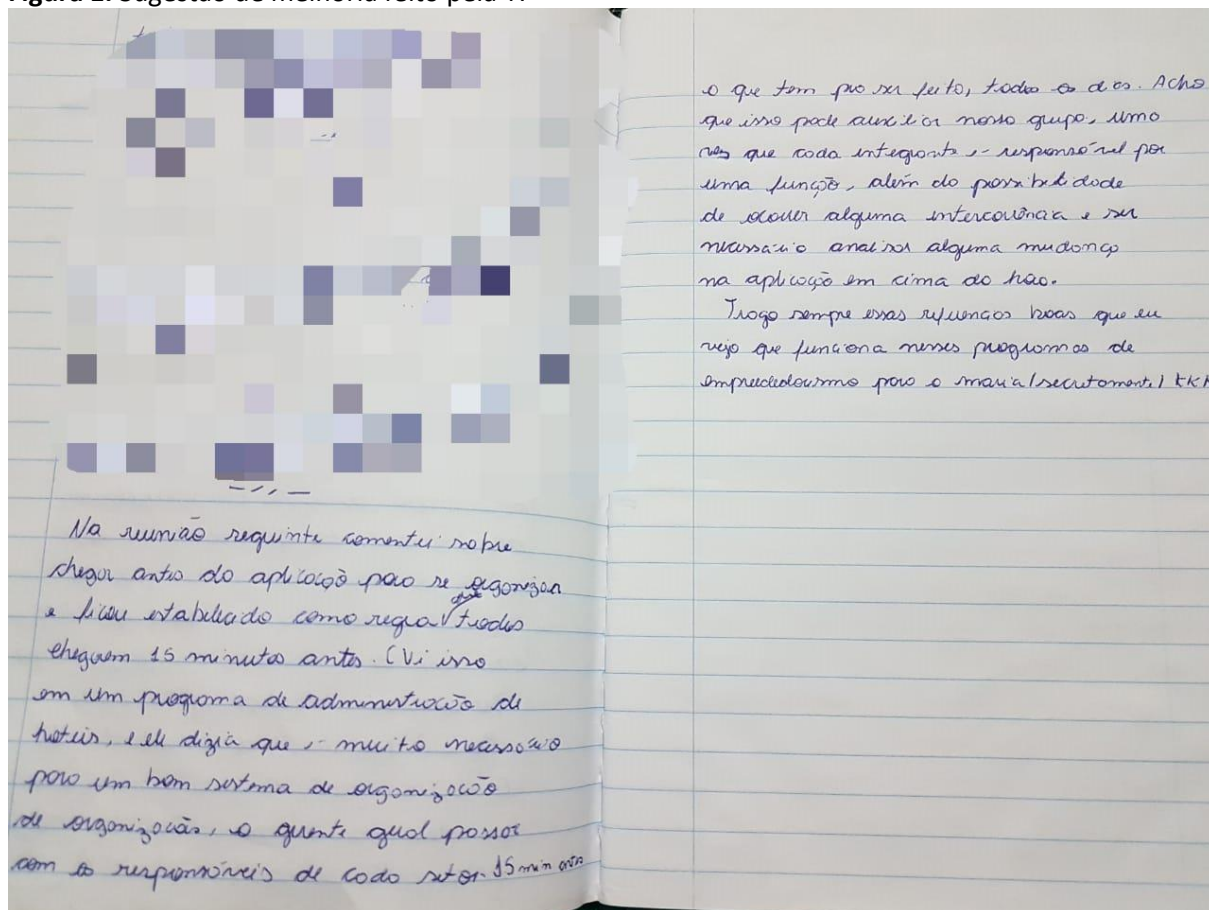 Na reunião seguinte comentei sobre
chegar antes da aplicação para se organizar
e ficou estabelecido como regra que todos
cheguem 15 minutos antes. (Vi isso
em um programa de administração de
hotéis, e ele dizia que é muito necessário
para um bom sistema de organização
de organização, o gerente geral passar
com os responsáveis de cada setor 15 min antes
o que tem pra ser feito, todos os dias. Acho
que isso pode auxiliar nosso grupo, uma
vez que cada integrante é responsável por
uma função, além da possibilidade
de ocorrer alguma intercorrência e ser
necessário analisar alguma mudança
na aplicação em cima da hora.
Trago sempre essas referências boas que eu
vejo que funciona nesses programas de
empreededorismo para o (secretamente) kkk